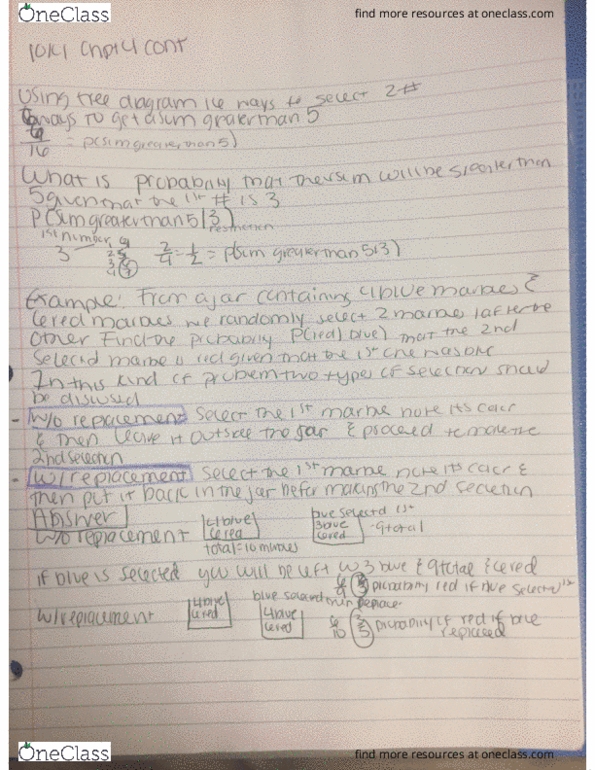 OneClass
find more resources at oneclass.com
10/21 Chp14 cont
Using tree diagram 16 ways to select 2#
6 ways to get a sum greater than 5
6/16 = p(sim greater than 5)
What is probability that the sum will be greater than
5 given that the 1st # is 3
P(sum greater than 5|3)
restriction
1st number
3
1 4
2 5
3 6
4 7
2/4 = 1/2 = p(sum greater than 5|3)
Example: From a jar containing 4 blue marbles &
6 red marbles we randomly select 2 marbles 1 after the
other Find the probability P(red|blue) that the 2nd
selected marble is red given that the 1st one was blue
In this kind of problem two types of selection should
be discussed
- W/o replacement: Select the 1st marble note its color
& then leave it outside the jar & proceed to make the
2nd selection
- W/replacement: Select the 1st marble note its color &
then put it back in the jar before making the 2nd selection
Answer
blue selected 1st
W/o replacement
4 blue
6 red
total=10
3 blue
6 red
9 total
if blue is selected you will be left w 3 blue & 9 total & 6 red
6/9 2/3 probability red if blue selected 1st
blue selected
replace
W/replacement
4 blue
6 red
4 blue
6 red
6/10 3/5 probability of red if blue
replaced
OneClass
find more resources at oneclass.com